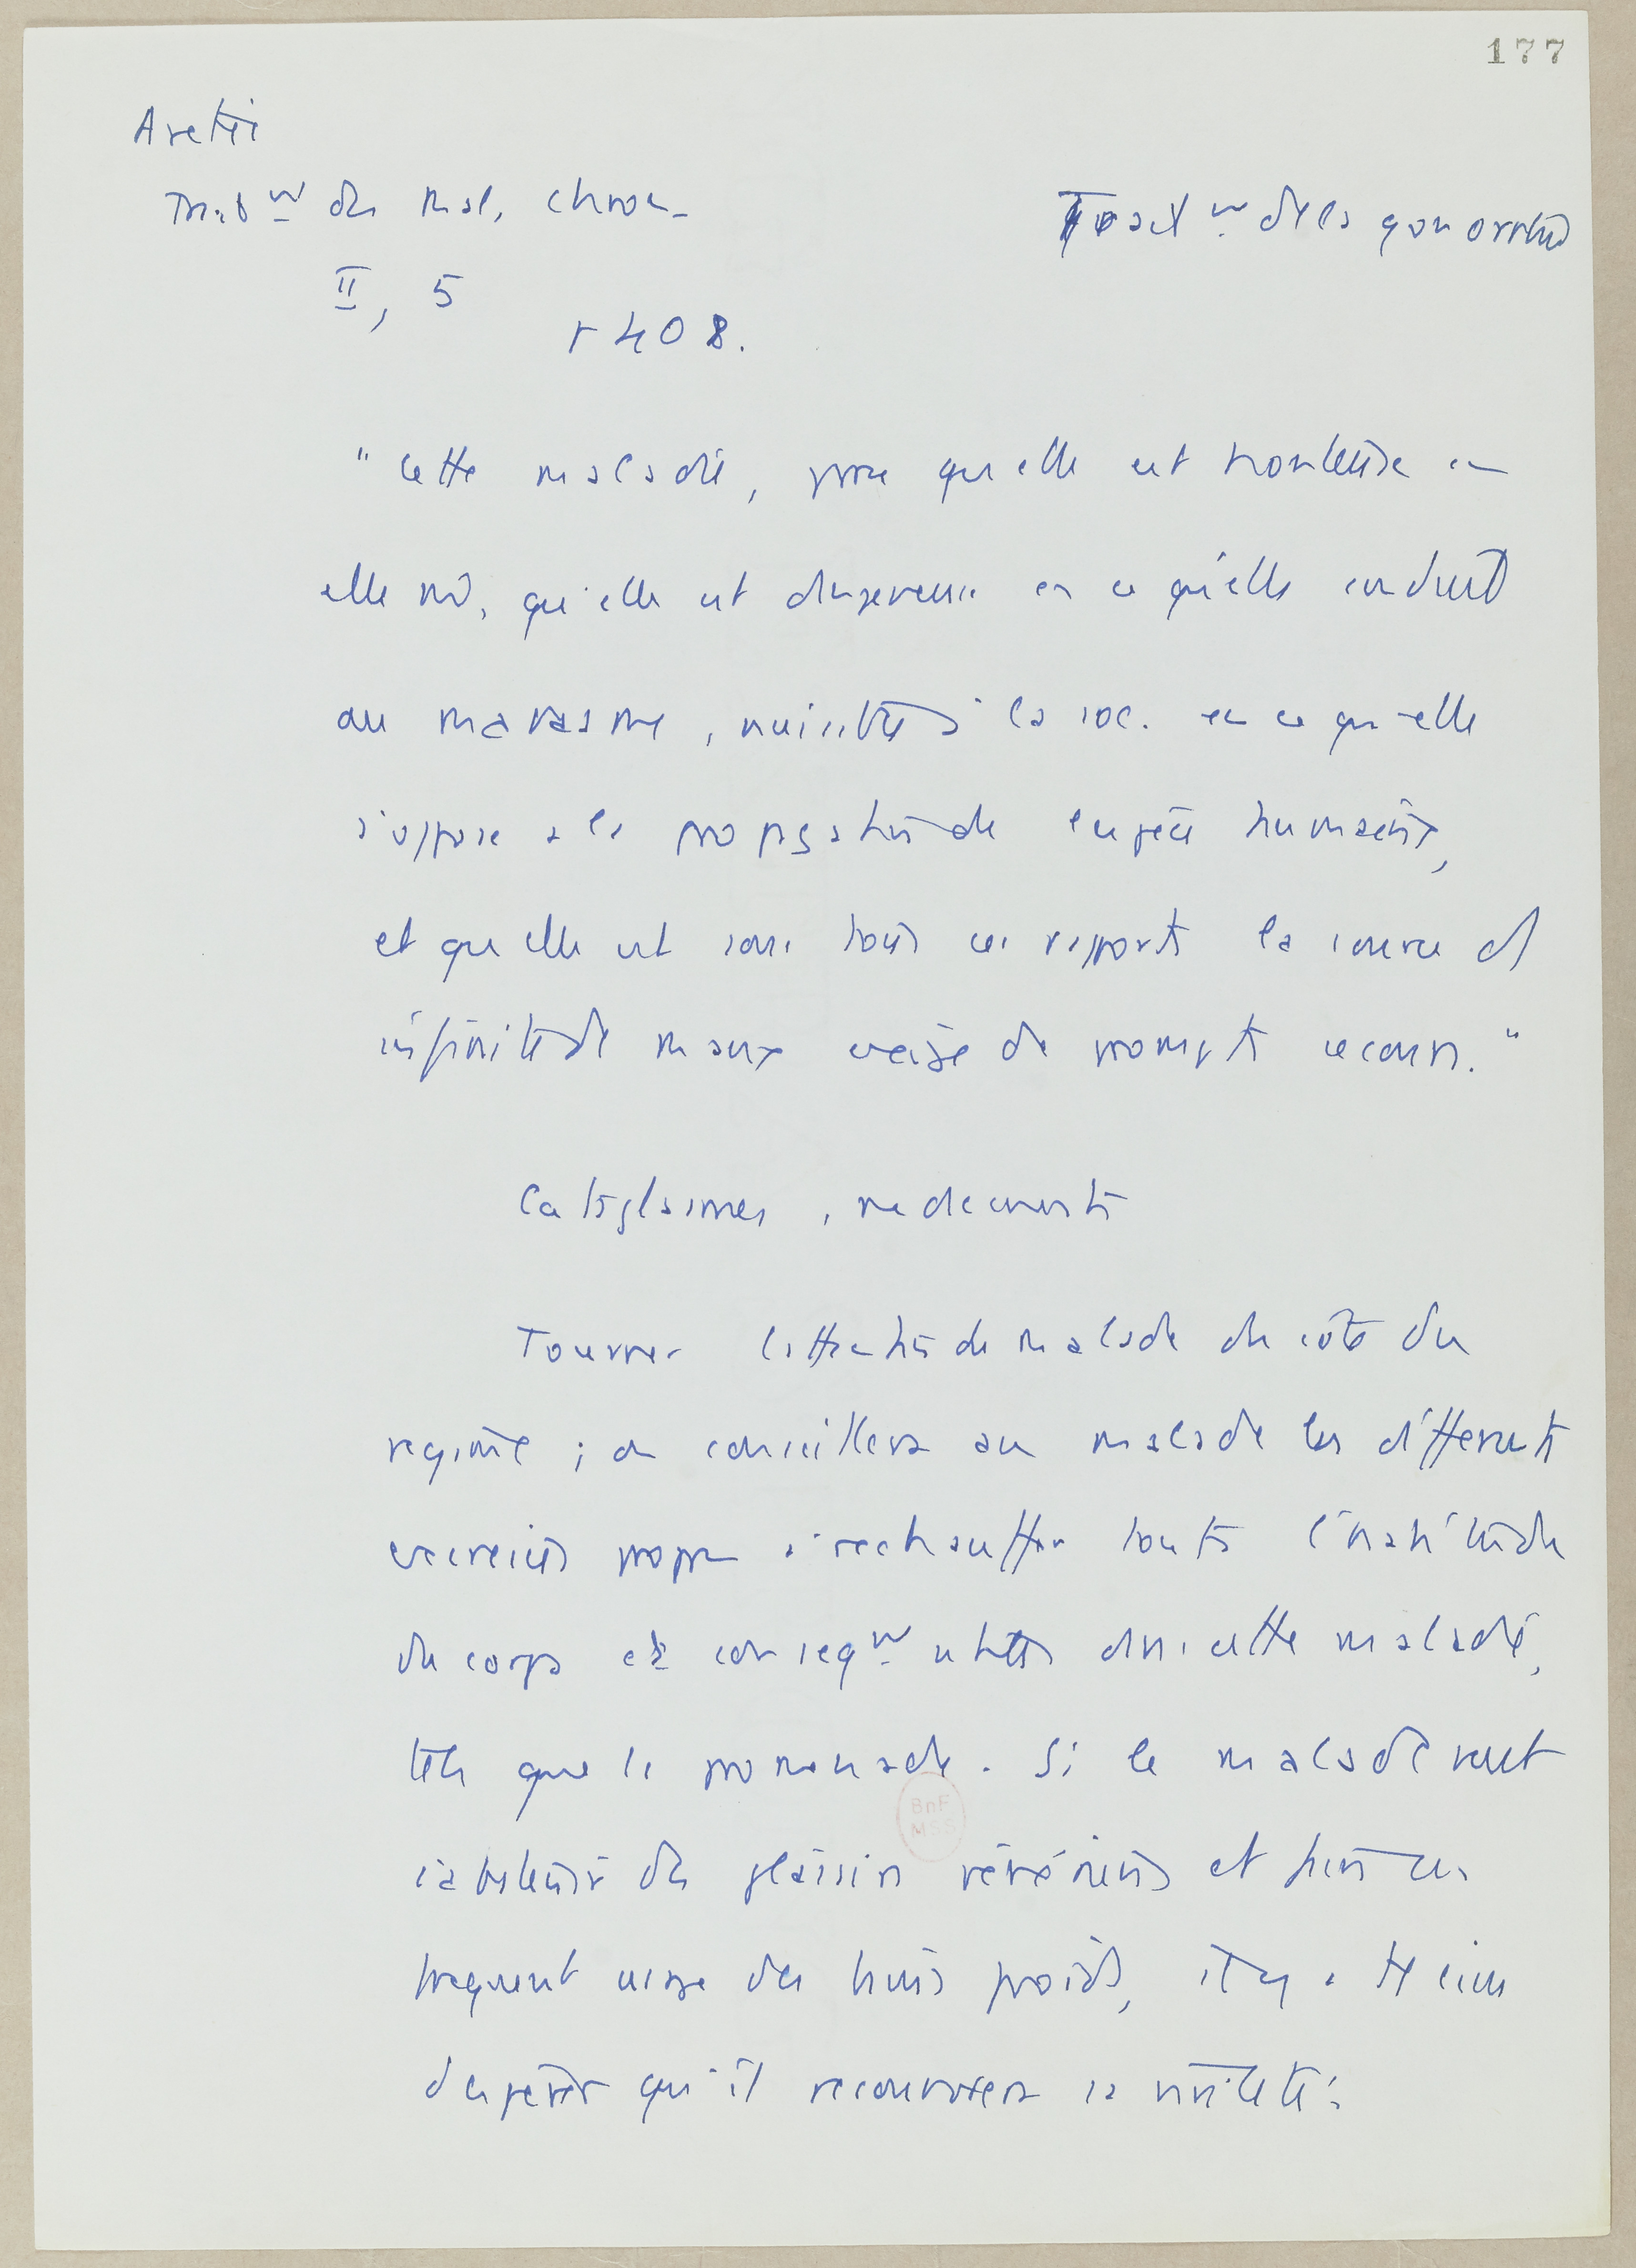 177
Arétée
Trait^m des mal. chron.
Trait^m de la gonorrhée
II, 5
p 408.
"Cette maladie, parce qu'elle est honteuse en
elle mê, qu'elle est dangereuse en ce qu'elle conduit
au marasme, nuisible à la soc. en ce qu'elle
s'oppose à la propagation de l'espèce humaine,
et qu'elle est sous tous ces rapports la source d'
infinité de maux exige de prompts secours."
Cataplasmes,
Tourner l'attention de malade du côté du
régime ; on conseillera au malade les différents
exercices propres à réchauffer toute l'habitude
du corps et conséq^m utiles dans cette maladie,
tels que la promenade. Si le malade veut
s'abstenir des plaisirs vénériens et faire un
fréquent usage des bains froids, il y a tt lieu
d'espérer qu'il recouvrera sa virilité.
BnF
MSS